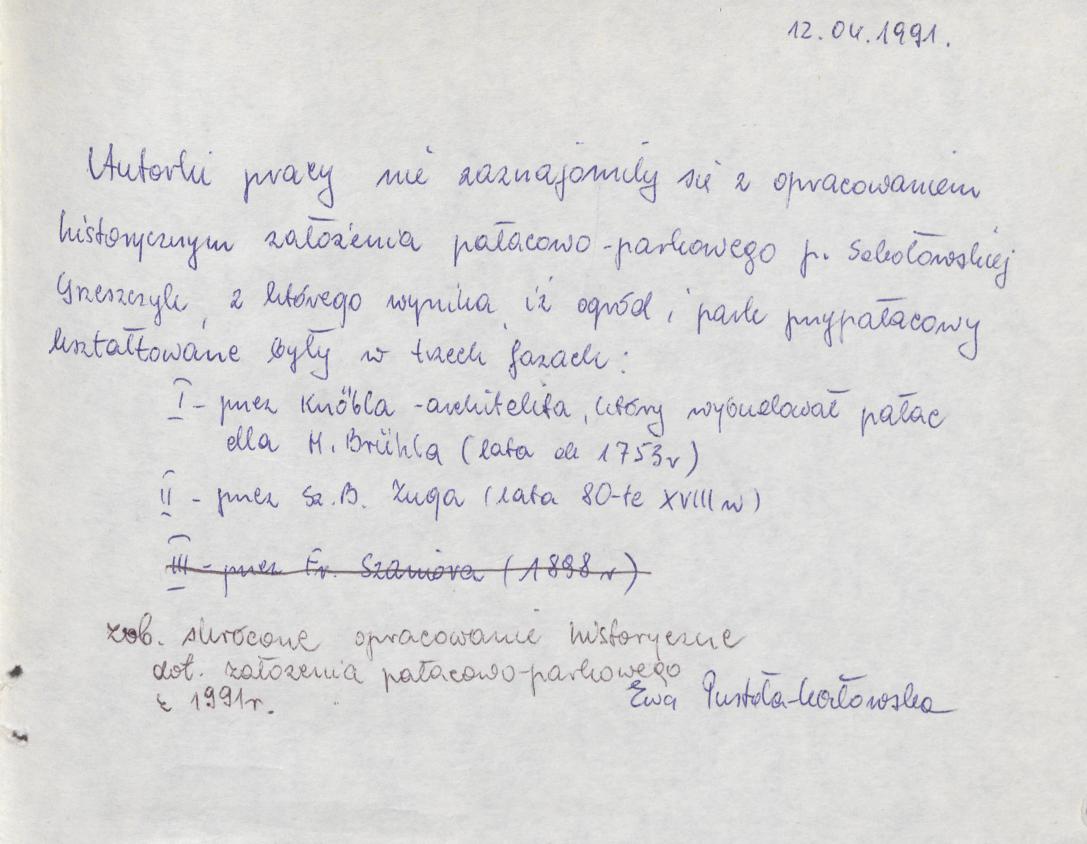 12.04.1991.
Autorki pracy nie zaznajomiły się z opracowaniem
historycznym założenia pałacowo-parkowego p. Sokołowskiej
Grzeszczyk, z którego wynika, iż ogród i park przypałacowy
kształtowane były w trzech fazach:
I - przez Knöbla - architekta, który wybudował pałac
dla H. Brühla (lata ok 1753r)
II - przez Sz. B. Zuga (lata 80-te XVIII w)
III - przez Fr. Szaniora (1898 r)
zob. skrócone opracowanie historyczne
dot. założenia pałacowo-parkowego
z 1991r.
Ewa Pustoła-Kozłowska